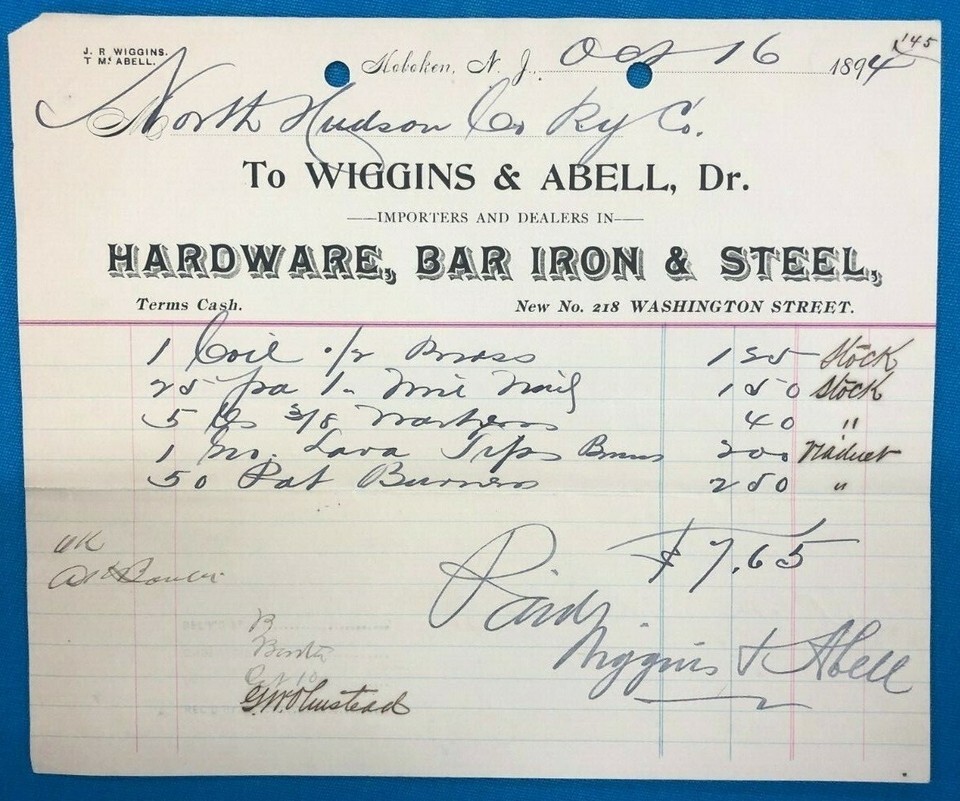 J. R. WIGGINS.
T M. ABELL.
Hoboken, N. J., Oct 16 1894
145
North Hudson Co Ry Co.
To WIGGINS & ABELL, Dr.
IMPORTERS AND DEALERS IN
HARDWARE, BAR IRON & STEEL,
Terms Cash. New No. 218 WASHINGTON STREET.
1 Coil Brass 1 25 Stock
25 1 Nail 1 50 Stock
5 3/8 Washers 40 "
1 Lava Tips 2 00 Viaduct
50 Pat Burners 2 50 "
$7.65
OK
Paid
Wiggins & Abell
G.W. Olmstead